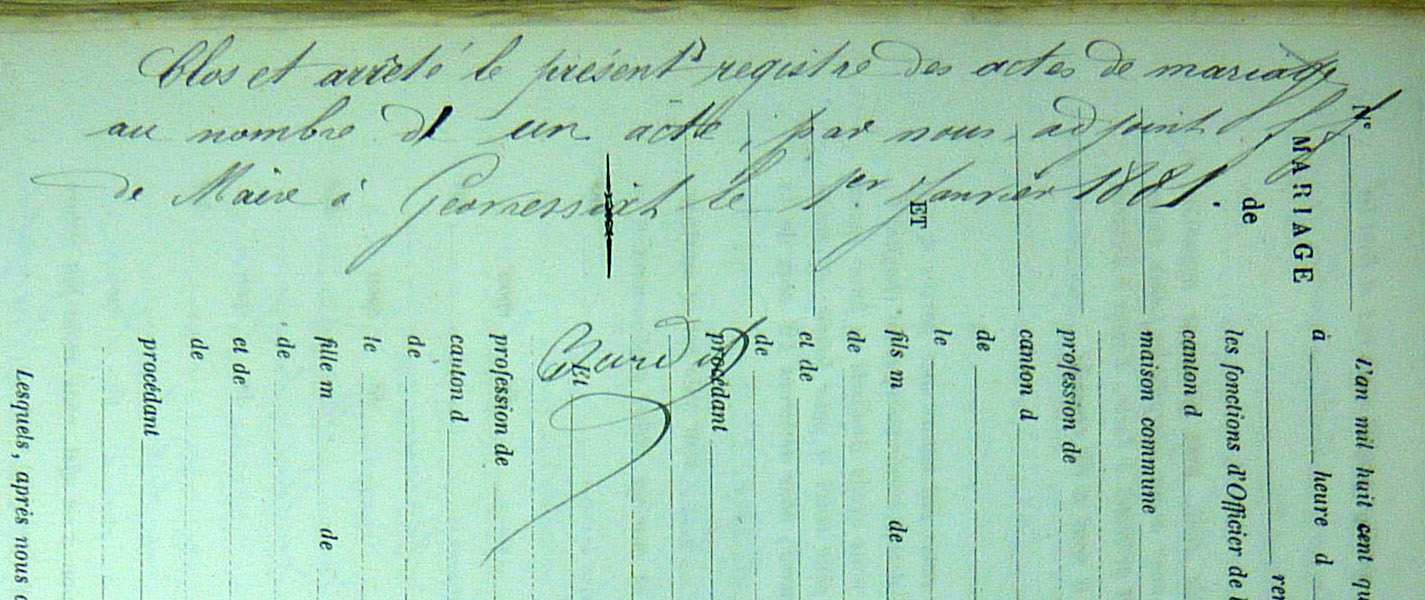 Clos et arrêté le présent registre des actes de mariage
au nombre d' un acte, par nous adjoint
de Maire à Géovressiat le 1er Janvier 1881.
N°
L'an mil huit cent qu
MARIAGE
à heure d
de
ET
les fonctions d'Officier de l
canton d
maison commune
profession de
canton d
de
le
fils m de
de
et de
de
procédant
Et
profession de
canton d
de
le
fille m de
de
et de
de
procédant
Lesquels, après nous